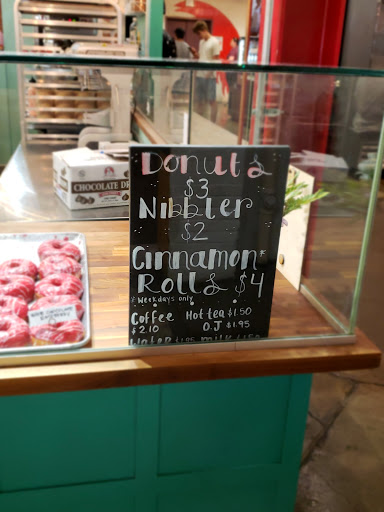 CHOCOLATE DR
Donuts
$3
Nibbler
$2
Cinnamon*
Rolls $4
* Weekdays only
Coffee Hot tea $1.50
$2.10 O.J $1.95